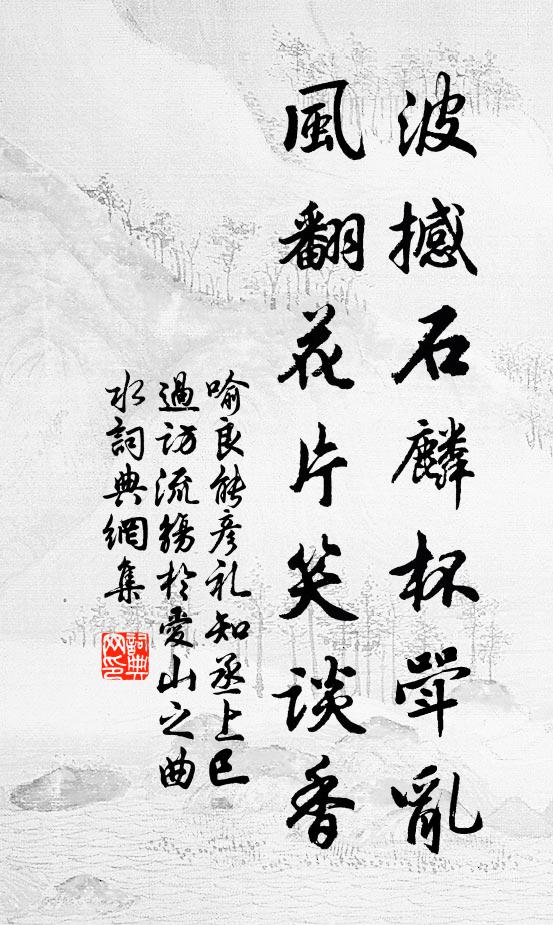 波撼石麟杯斝亂
風翻花片笑談香
喻良能彥礼知丞上巳
過訪流觴於愛山之曲
水詞典網集
詞典
网印